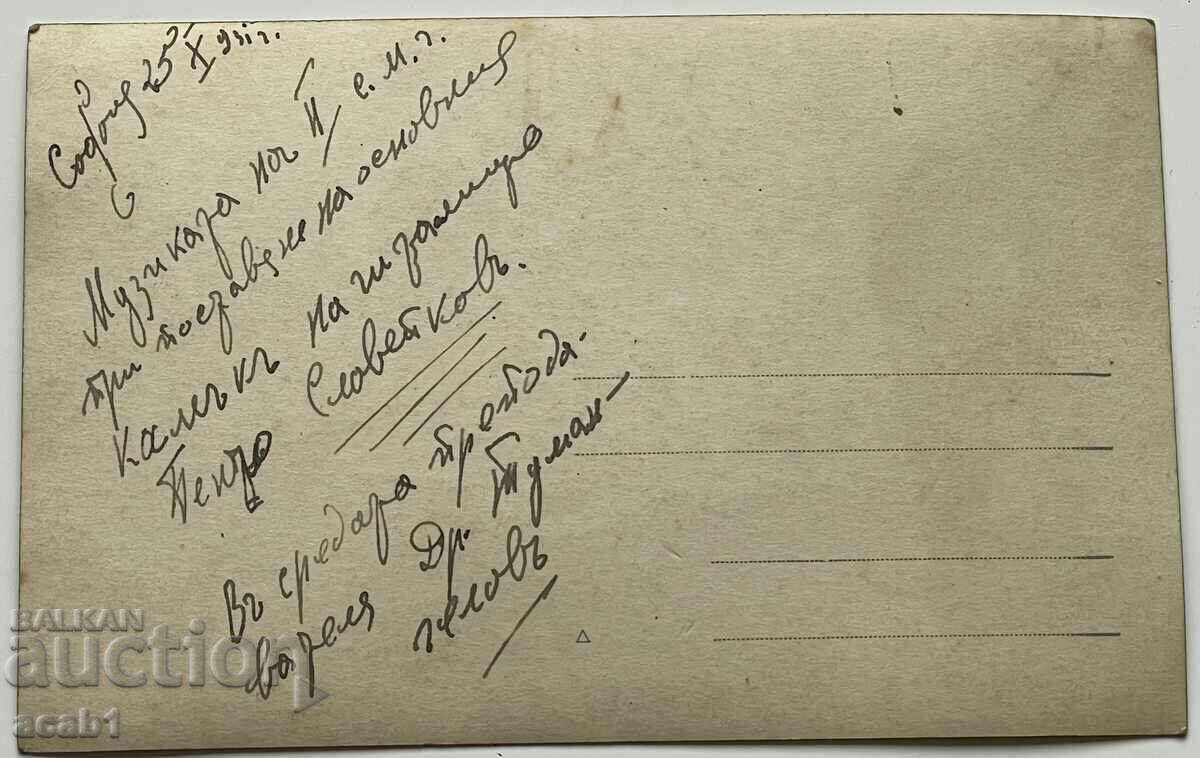 София 25 X 931 г.
Музиката на II с. м. г.
при поставяне на основния
камъкъ на училище
Пенчо Славейковъ.
Въ средата препода-
вателя Др. Туман-
геловъ
BALKAN
auction
acab1